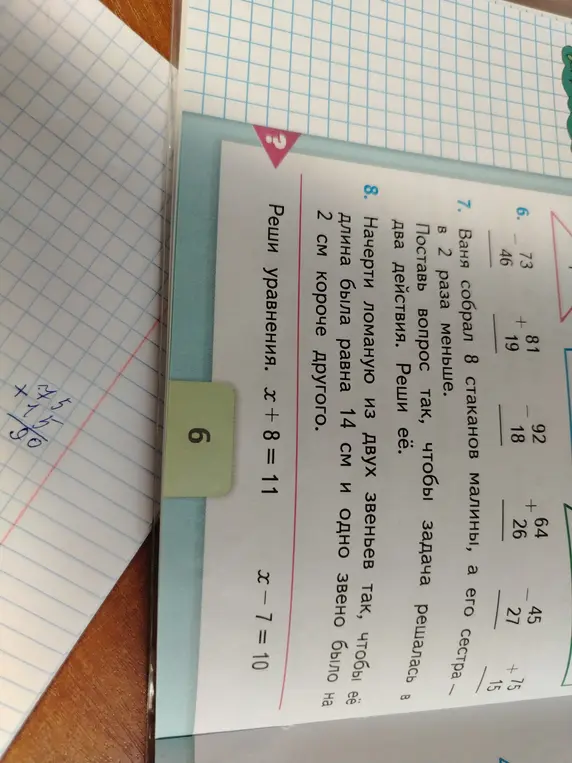 6. − 73 + 81 − 92 + 64 − 45 + 75
46 19 18 26 27 15
7. Ваня собрал 8 стаканов малины, а его сестра –
в 2 раза меньше.
Поставь вопрос так, чтобы задача решалась в
два действия. Реши её.
8. Начерти ломаную из двух звеньев так, чтобы её
длина была равна 14 см и одно звено было на
2 см короче другого.
?
Реши уравнения. x + 8 = 11 x − 7 = 10
6
75
+ 15
90